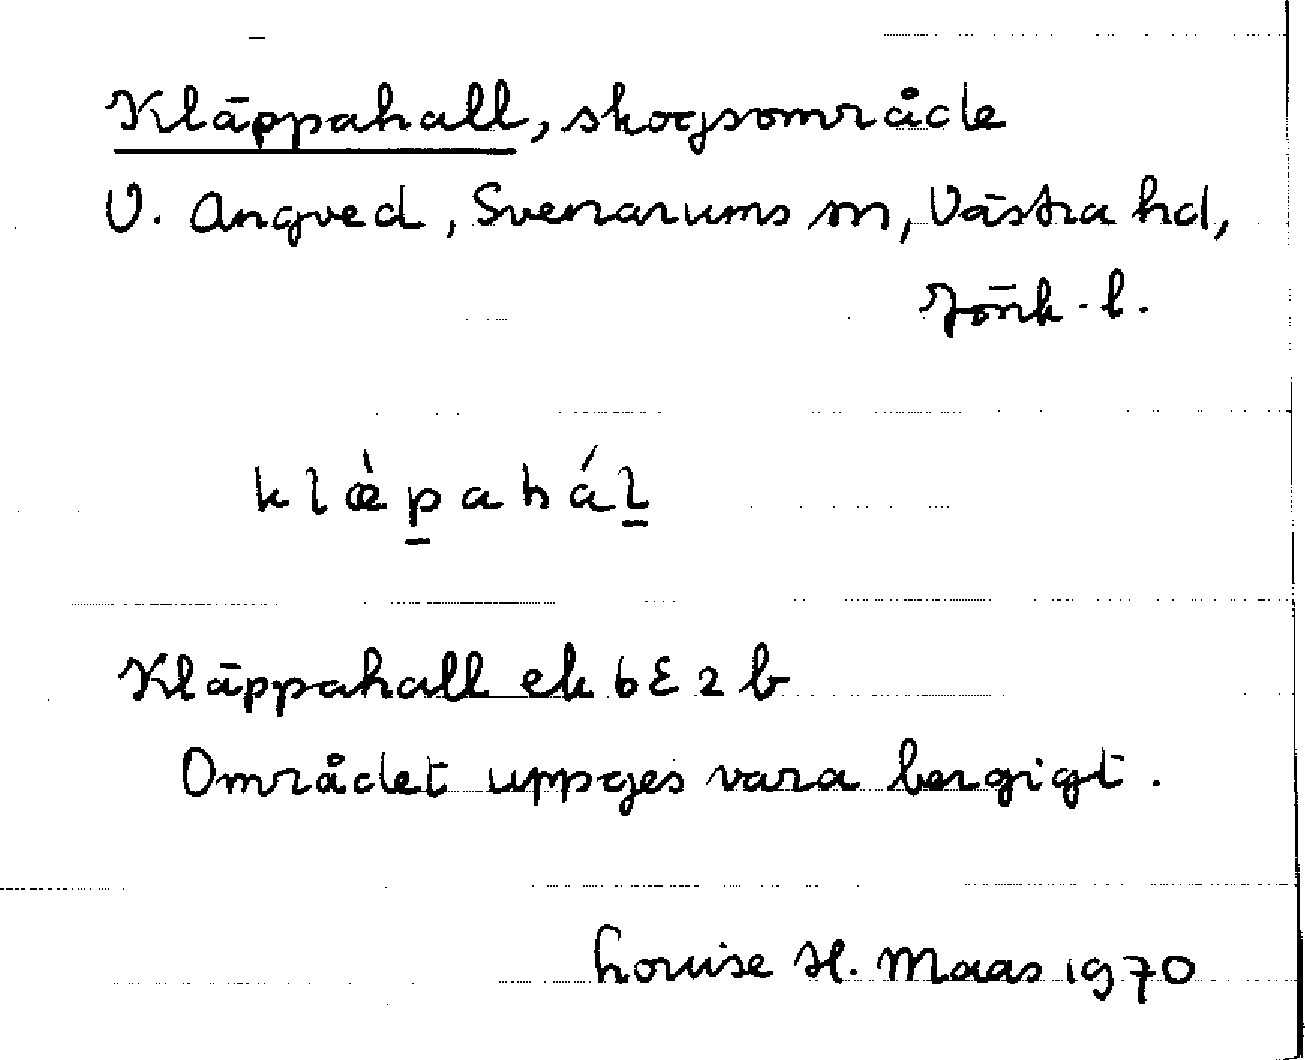 Kläppahall, skogsområde
V. Angved, Svenarums sn, Västra hd,
Jönk. l.
klæ̀p̲ahál̲
Kläppahall ek 6E 2 b
Området uppges vara bergigt.
Louise H. Maas 1970